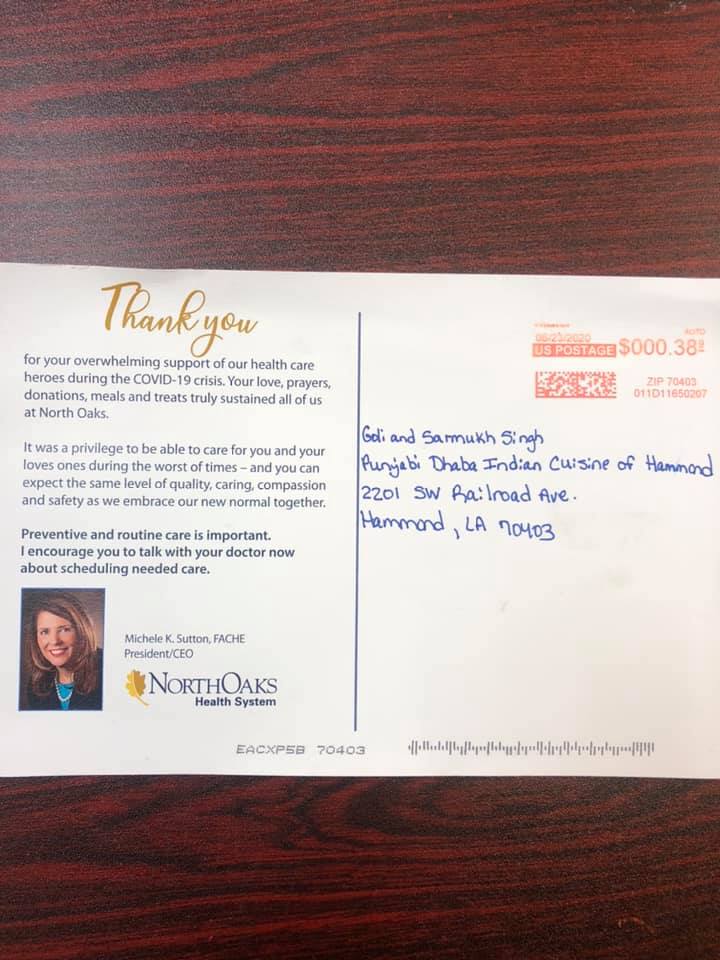 Thank you
for your overwhelming support of our health care
heroes during the COVID-19 crisis. Your love, prayers,
donations, meals and treats truly sustained all of us
at North Oaks.
It was a privilege to be able to care for you and your
loves ones during the worst of times – and you can
expect the same level of quality, caring, compassion
and safety as we embrace our new normal together.
Preventive and routine care is important.
I encourage you to talk with your doctor now
about scheduling needed care.
Michele K. Sutton, FACHE
President/CEO
NORTH OAKS
Health System
06/23/2020
AUTO
US POSTAGE $000.38⁢
ZIP 70403
011D11650207
Goli and Sarmukh Singh
Punjabi Dhaba Indian Cuisine of Hammond
2201 SW Railroad Ave.
Hammond, LA 70403
EACXP5B 70403